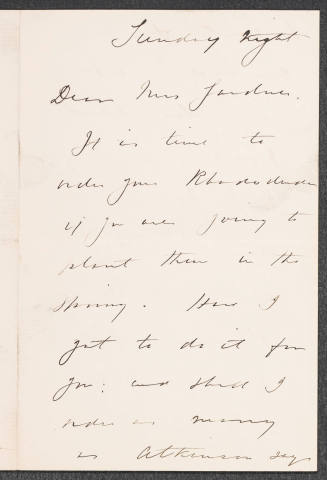 Sunday Night
Dear Mrs Gardner.
It is time to
order your Rhododendr
if you are going to
plant them in the
Spring. Have I
got to do it for
you; and shall I
order as many
as Atkinson says